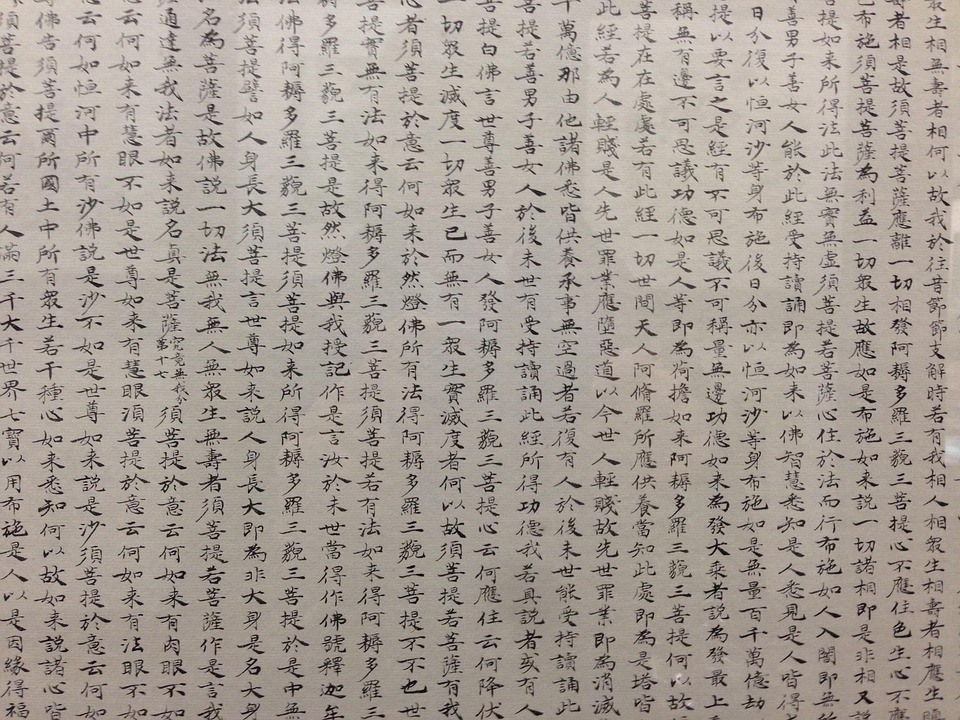 衆生相無壽者相何以故我於往昔節節支解時若有我相人相衆生相壽者相應生瞋
壽者相是故須菩提菩薩應離一切相發阿耨多羅三藐三菩提心不應住色生心不應
已布施須菩提菩薩為利益一切衆生故應如是布施如来說一切諸相即是非相又說
菩提如来所得法此法無實無虛須菩提若菩薩心住於法而行布施如人入闇即無所
善男子善女人能於此經受持讀誦即為如来以佛智慧悉知是人悉見是人皆得
日分復以恒河沙等身布施後日分亦以恒河沙等身布施如是無量百千萬億劫
提以要言之是經有不可思議不可稱量無邊功德如来為發大乘者說為發最上
稱無有邊不可思議功德如是人等即為荷擔如来阿耨多羅三藐三菩提何以故
菩提在在處處若有此經一切世間天人阿脩羅所應供養當知此處即為是塔皆
此經若為人輕賤是人先世罪業應隨惡道以今世人輕賤故先世罪業即為消滅
千萬億那由他諸佛悉皆供養承事無空過者若復有人於後末世能受持讀誦此
菩提若善男子善女人於後末世有受持讀誦此經所得功德我若具說者或有人
菩提白佛言世尊善男子善女人發阿耨多羅三藐三菩提心云何應住云何降伏
一切衆生滅度一切衆生已而無有一衆生實滅度者何以故須菩提若菩薩有我
心者須菩提於意云何如来於然燈佛所有法得阿耨多羅三藐三菩提不不也世
菩提實無有法如来得阿耨多羅三藐三菩提須菩提若有法如来得阿耨多羅三
耨多羅三藐三菩提是故然燈佛與我授記作是言汝於未世當得作佛號釋迦牟
法佛得阿耨多羅三藐三菩提須菩提如来所得阿耨多羅三藐三菩提於是中無
法須菩提譬如人身長大須菩提言世尊如来說人身長大即為非大身是名大身
名為菩薩是故佛說一切法無我無人無衆生無壽者須菩提若菩薩作是言我
通達無我法者如来說名真是菩薩究竟無我分第十七須菩提於意云何如来有肉眼不如
云何如来有慧眼不如是世尊如来有慧眼須菩提於意云何如来有法眼不如
云何如恒河中所有沙佛說是沙不如是世尊如来說是沙須菩提於意云何如
佛告須菩提爾所國土中所有衆生若干種心如来悉知何以故如来說諸心皆
須菩提於意云何若有人滿三千大千世界七寶以用布施是人以是因緣得福